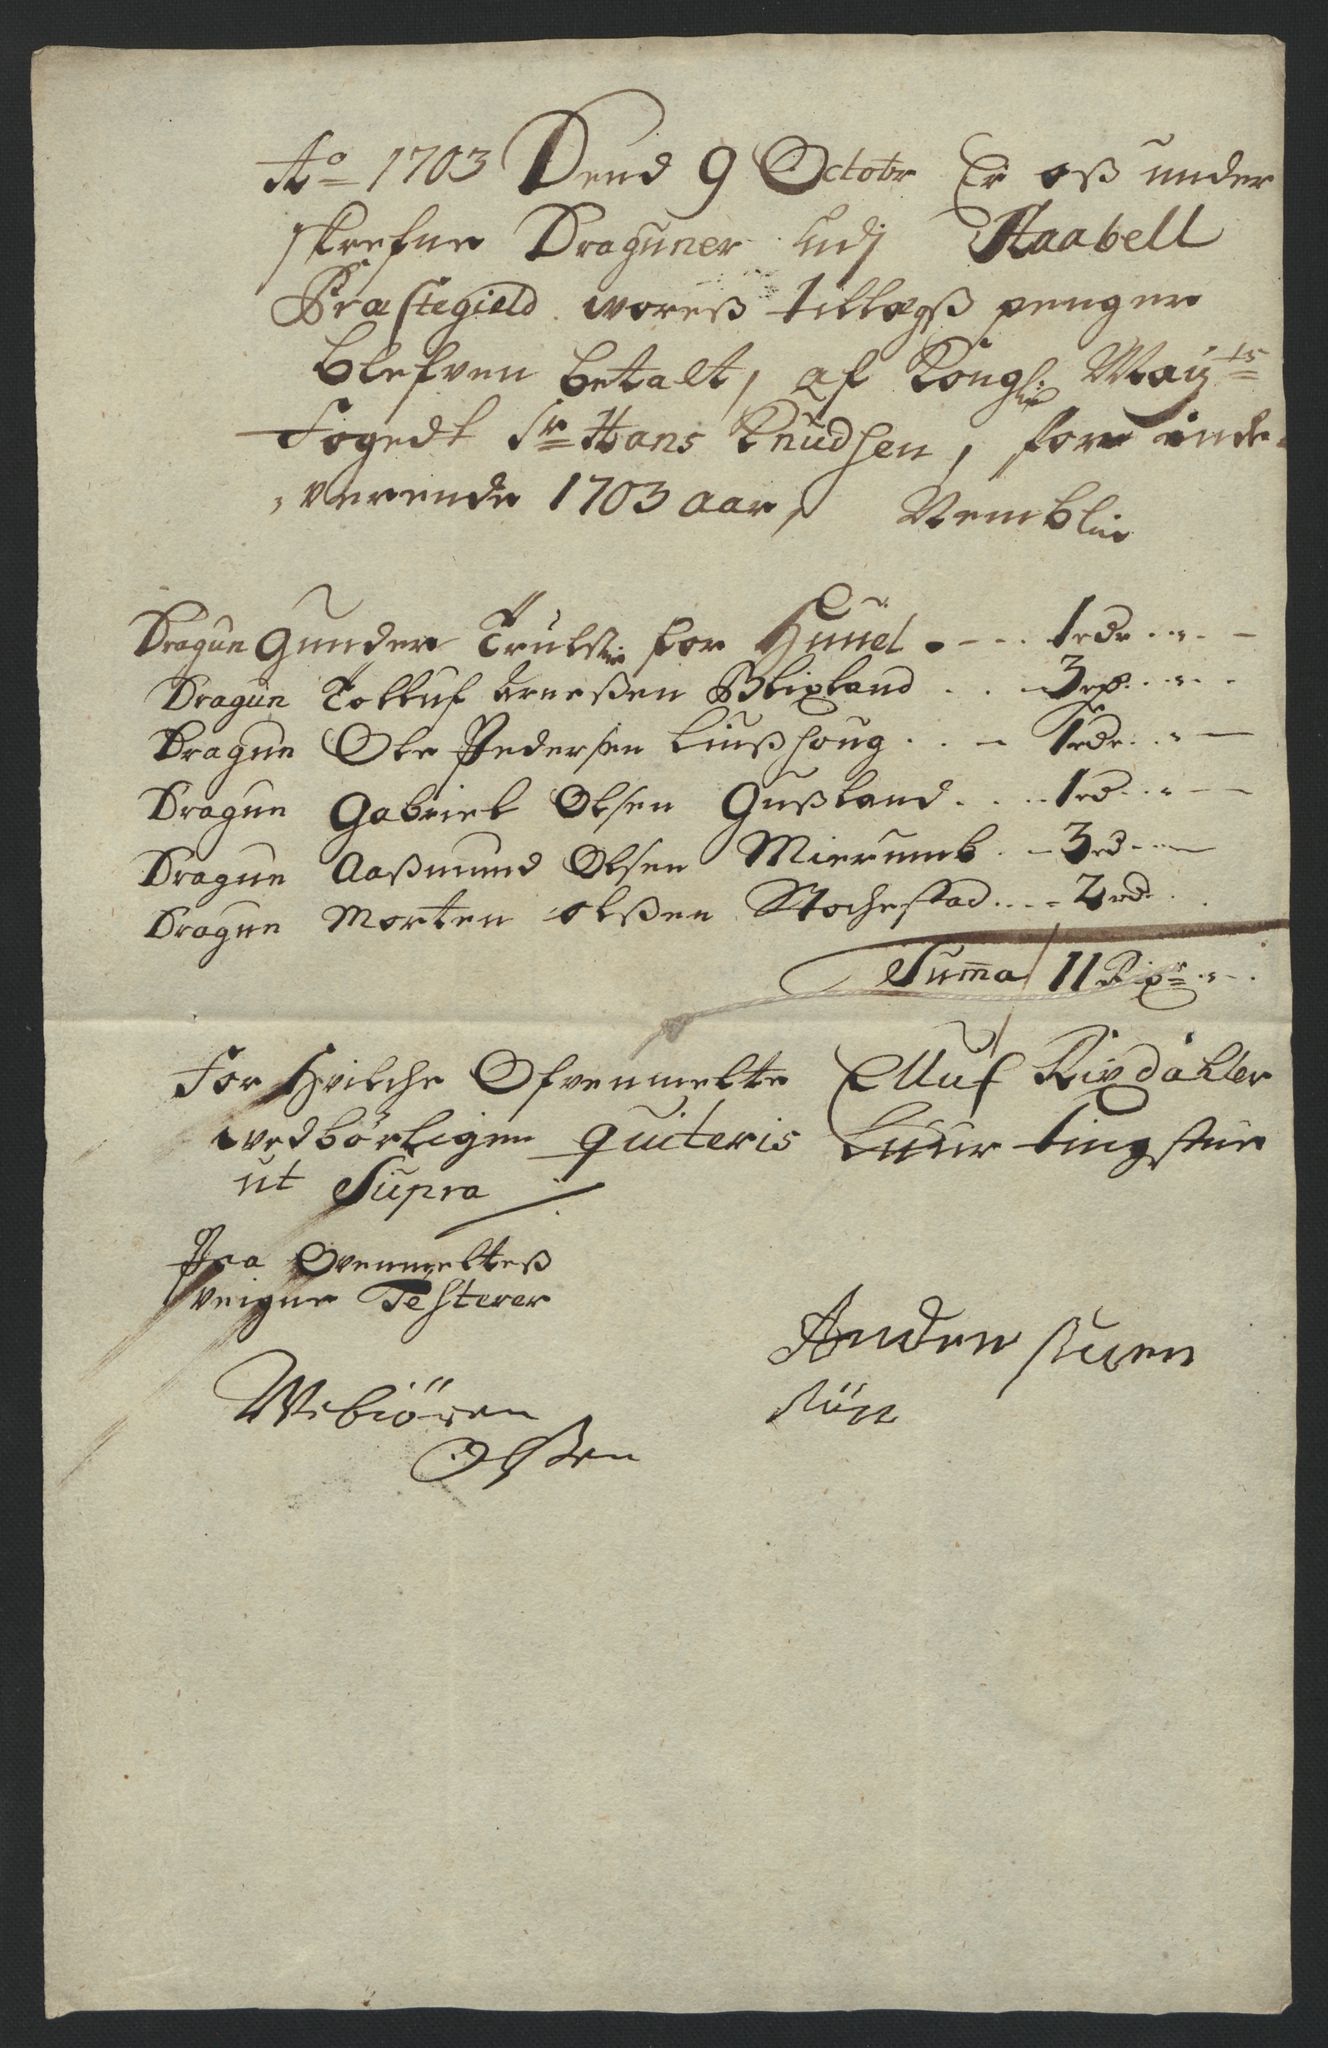 Ao 1703 Dend 9 Octobr Er oß under
skrefne Draguner udj Haabell
Præstegield woreß tillegß penger
blefven betalt, af Kongl: Mayts
Fogedt Sr Hans Knudsen, for inde-
verende 1703 aar, Nemblig
Dragun Gunder Trulsen for Huuel . - . . 1 rdr . . " . -
Dragun Tolluf Arneßen Blixland . . . 3 rd . . " . -
Dragun Ole Pedersen Liußhoug . . - 1 rdr . . " -
Dragun Gabriel Olsen Gußland . . . . 1 rd . . " -
Dragun Aaßmund Olsen Mierumb . - 3 rd . -
Dragun Morten olßen Stochestad . . . . 2 rd . .
Summa 11 Rixdr . " - .
For Hvilche Ofvenmelte Elluf Rixdahler
wedbørligen quiteris Huur tingstue
ut Supra
Paa Ovenmelteß
veigne Testerer
Webiören
Olßen
Anders suen
sön